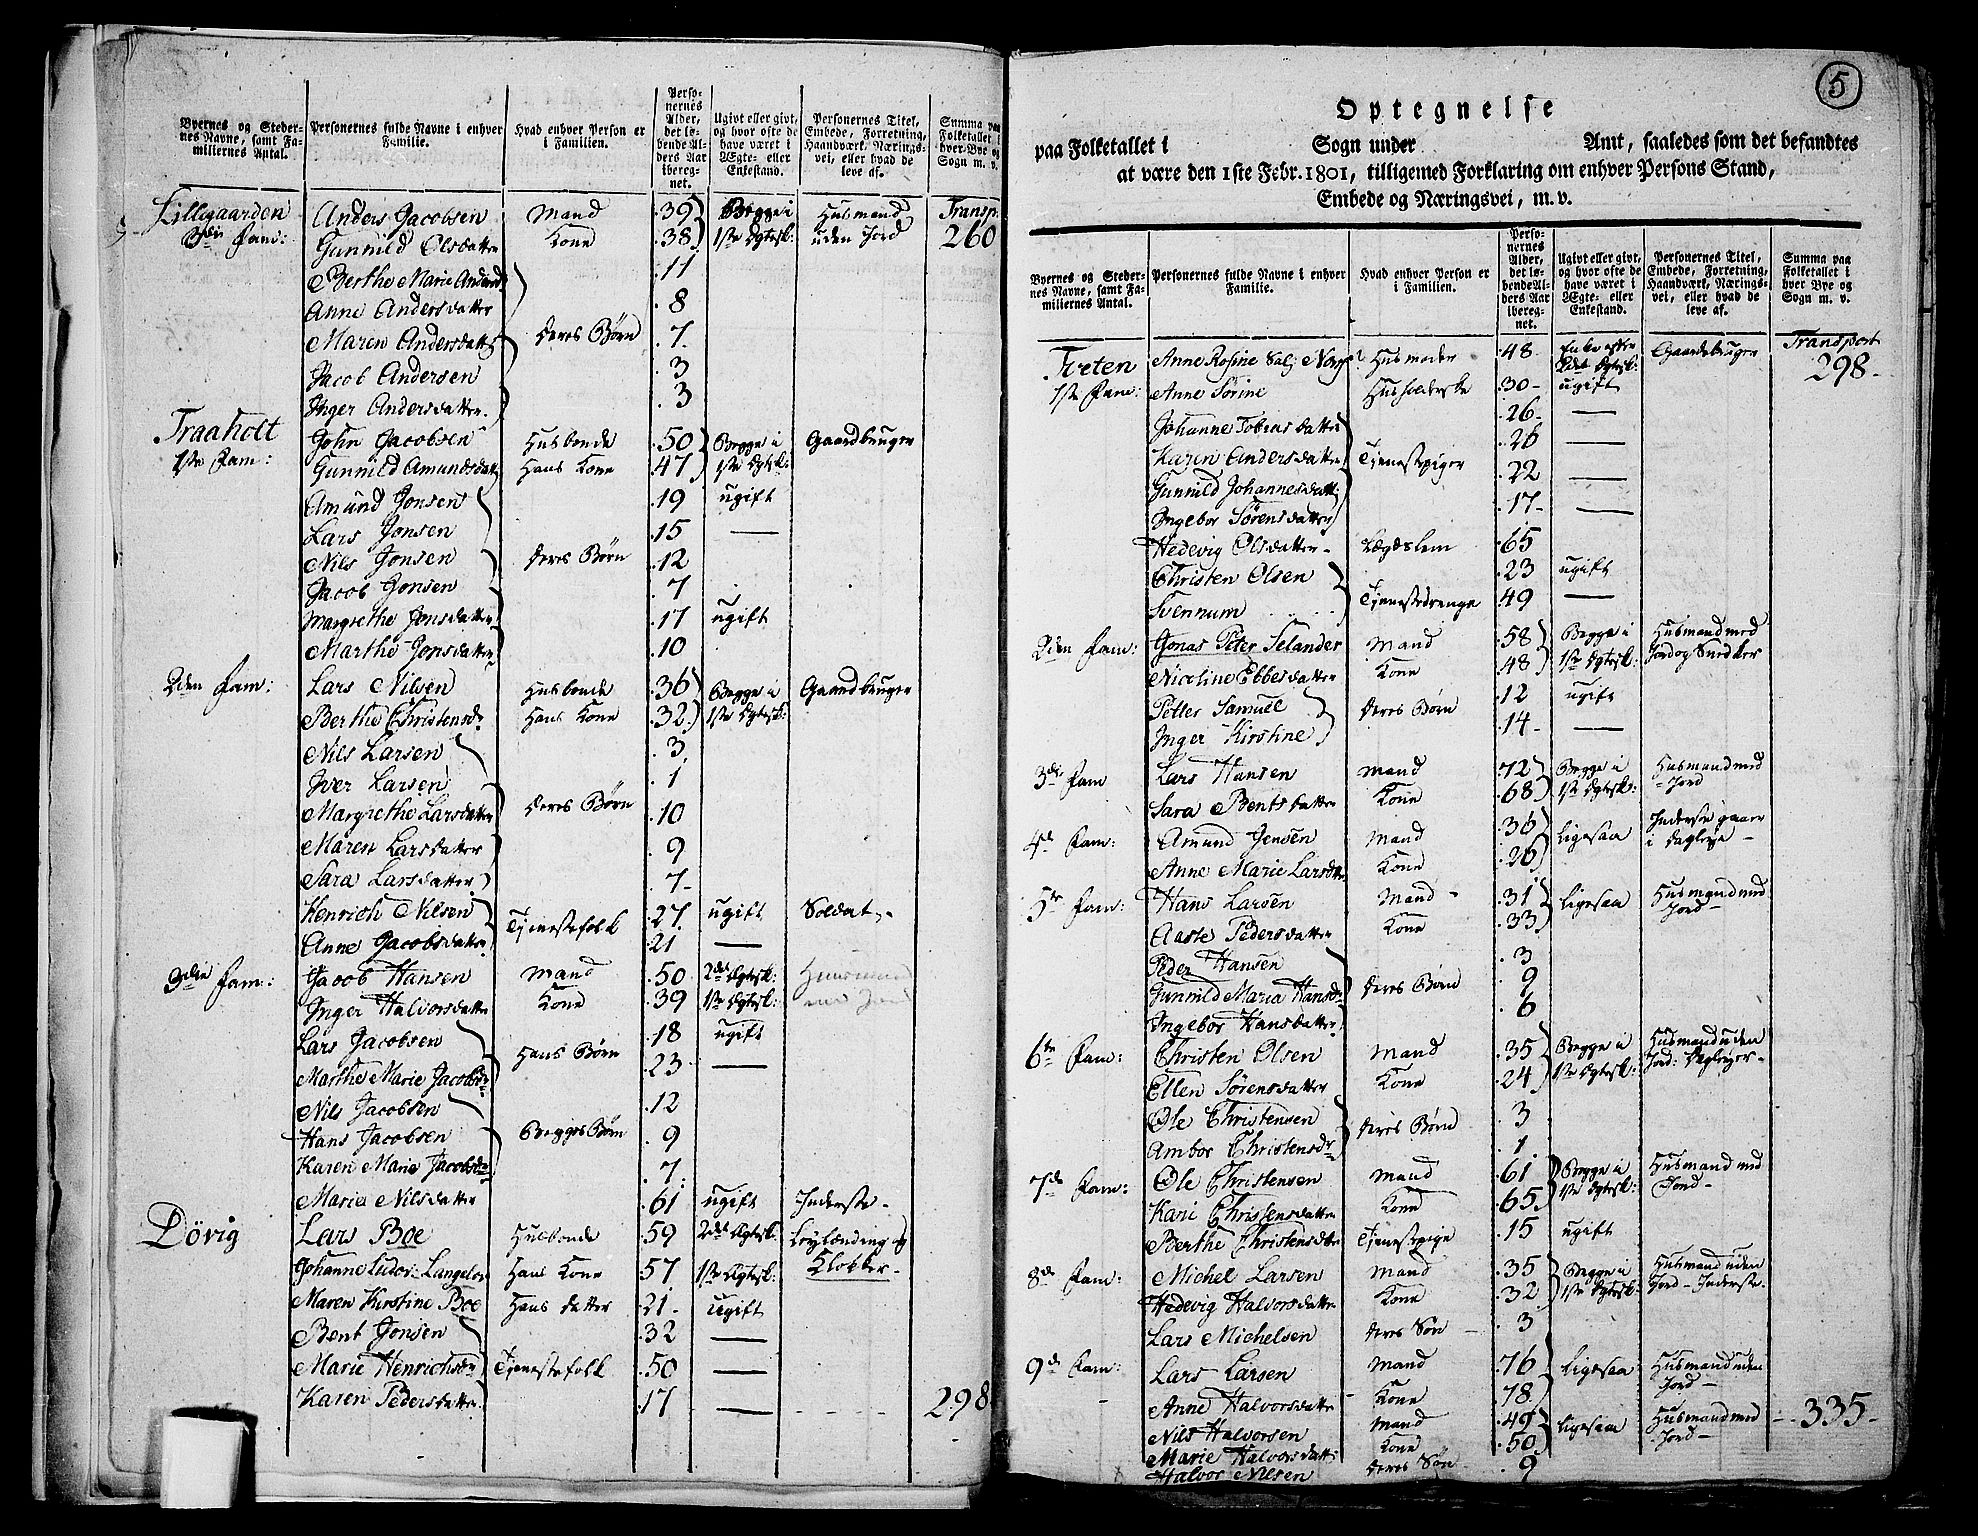 Byernes og Steder-nes Navne, samt Fa-miliernes Antal. | Personernes fulde Navne i enhver Familie. | Hvad enhver Person er i Familien. | Perso-nernes Alder, det lø-bende Al-ders Aar ibereg-net. | Ugivt eller givt, og hvor ofte de have været i Ægte- eller Enkestand. | Personernes Titel, Embede, Forretning, Haandværk, Nærings-vei, eller hvad de leve af. | Summa paa Folketallet i hver Bye og Sogn m. v.
Lillegaarden Anders Jacobsen Mand 39 Begge i Husmand Transp:
3die Fam: Gunnild Olsdatter Kone 38 1ste Egtesk: uden Jord 260
Berthe Marie Andersd 11
Anne Andersdatter 8
Maren Andersdatt Deres Børn 7
Jacob Andersen 3
Inger Andersdatter 3
Traaholt John Jacobsen Husbonde 50 Begge i Gaardbruger
1ste Fam: Gunnild Amundsdatt Hans Kone 47 1ste Egtesk:
Amund Jonsen 19 ugift
Lars Jonsen 15 —
Nils Jonsen Deres Børn 12
Jacob Jonsen 7
Margrethe Jonsdatter 17 ugift
Marthe Jonsdatter 10
2den Fam: Lars Nilsen Husbonde 36 Begge i Gaardbruger
Berthe Christensdr Hans Kone 32 1ste Egtesk:
Nils Larsen 3
Iver Larsen 1
Margrethe Larsdatter Deres Børn 10
Maren Larsdatter 9
Sara Larsdatter 7
Henrich Nilsen Tjenestefolk 27 ugift Soldat
Anne Jacobsdatter 21 —
3die Fam: Jacob Hansen Mand 50 2det Egtesk: Huusmand
Inger Halvorsdatter Kone 39 1ste Egtesk: med Jord
Lars Jacobsen Hans Børn 18 ugift
Marthe Marie Jacobsdr 23 —
Nils Jacobsen 12
Hans Jacobsen Begges Børn 9
Karen Marie Jacobsdr 7
Maria Nilsdatter 61 ugift Inderste
Dövig Lars Boe Husbonde 59 2det Egtesk: Leylænding og
Johanne Ludovi Langelov Hans Kone 57 1ste Egtesk: Klokker
Maren Kirstine Boe Hans datter 21 ugift
Bent Jonsen 32 —
Marie Henrichsdr Tjenestefolk 50 —
Karen Pedersdatter 17 — 298
5
Optegnelse
paa Folketallet i Sogn under Amt, saaledes som det befandtes
at være den 1ste Febr. 1801, tilligemed Forklaring om enhver Persons Stand,
Embede og Næringsvei, m. v.
Byernes og Steder-nes Navne, samt Fa-miliernes Antal. | Personernes fulde Navne i enhver Familie. | Hvad enhver Person er i Familien. | Perso-nernes Alder, det lø-bende Al-ders Aar ibereg-net. | Ugivt eller givt, og hvor ofte de have været i Ægte- eller Enkestand. | Personernes Titel, Embede, Forretning, Haandværk, Nærings-vei, eller hvad de leve af. | Summa paa Folketallet i hver Bye og Sogn m. v.
Treten Anne Rosine Husmoder 48 Enke efter 2det Egtesk: Gaardbruger Transport
1ste Fam: Anne Sørine Husholderske 30 ugift 298
Johanne Tobiasdatter 26 —
Karen Andersdatter Tjenestepiger 26 —
Gunnild Johannesdatt: 22 —
Ingebor Sørensdatter 17 —
Hedevig Olsdatter Lægdslem 65
Christen Olsen 23 ugift
Svennum Tjenestedrenge 49 —
2den Fam: Jonas Peter Selander Mand 58 Begge i Husmand med
Nicoline Ebbesdatter Kone 48 1ste Egtesk: Jord og Snedker
Petter Samuel Deres Børn 12 ugift
Inger Kirstine 14 —
3die Fam Lars Hansen Mand 72 Begge i Husmand med
Sara Bentsdatter Kone 68 1ste Egtesk: Jord
4de Fam: Amund Jensen Mand 36 Ligesaa Inderste gaaer
Anne Marie Larsdtr Kone 26 i dagleye
5te Fam: Hans Larsen Mand 31 Ligesaa Husmand med
Aaste Pedersdatter Kone 33 Jord
Peder Hansen 3
Gunnild Maria Hansdr Deres Børn 9
Ingebor Hansdatter 6
6te Fam: Christen Olsen Mand 35 Begge i Husmand uden
Ellen Sørensdatter Kone 24 1ste Egtesk: Jord: Dagleyer
Ole Christensen Deres Børn 3
Ambor Christensdr 1
7de Fam: Ole Christensen Mand 61 Begge i Husmand med
Kari Christensdatter Kone 65 1ste Egtesk: Jord
Berthe Christensdtr Tjenestepige 15 ugift
8de Fam: Michel Larsen Mand 35 Begge i Husmand uden
Hedevig Halvorsdatter Kone 32 1ste Egtesk: Jord - Inderste
Lars Michelsen Deres Søn 3
9de Fam: Lars Larsen Mand 76 Ligesaa Husmand uden
Anne Halvorsdatter Kone 78 Jord
Nils Halvorsen Mand 49 Ligesaa Husmand med 335
Marie Halvorsdatt: Kone 50 Jord
Halvor Nilsen Deres Søn 9